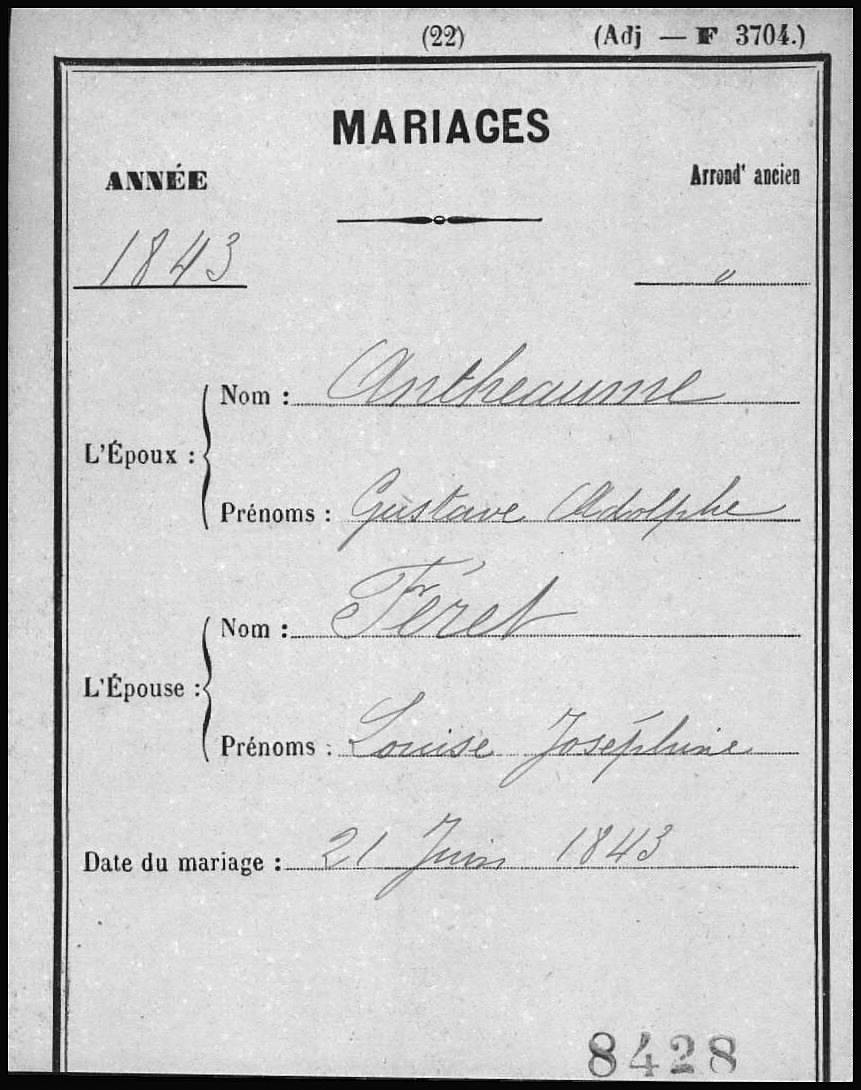 (22) (Adj — F 3704.)
MARIAGES
ANNÉE Arrondt ancien
1843 "
L'Époux :
Nom : Antheaume
Prénoms : Gustave Adolphe
L'Épouse :
Nom : Féret
Prénoms : Louise Joséphine
Date du mariage : 21 Juin 1843
8428